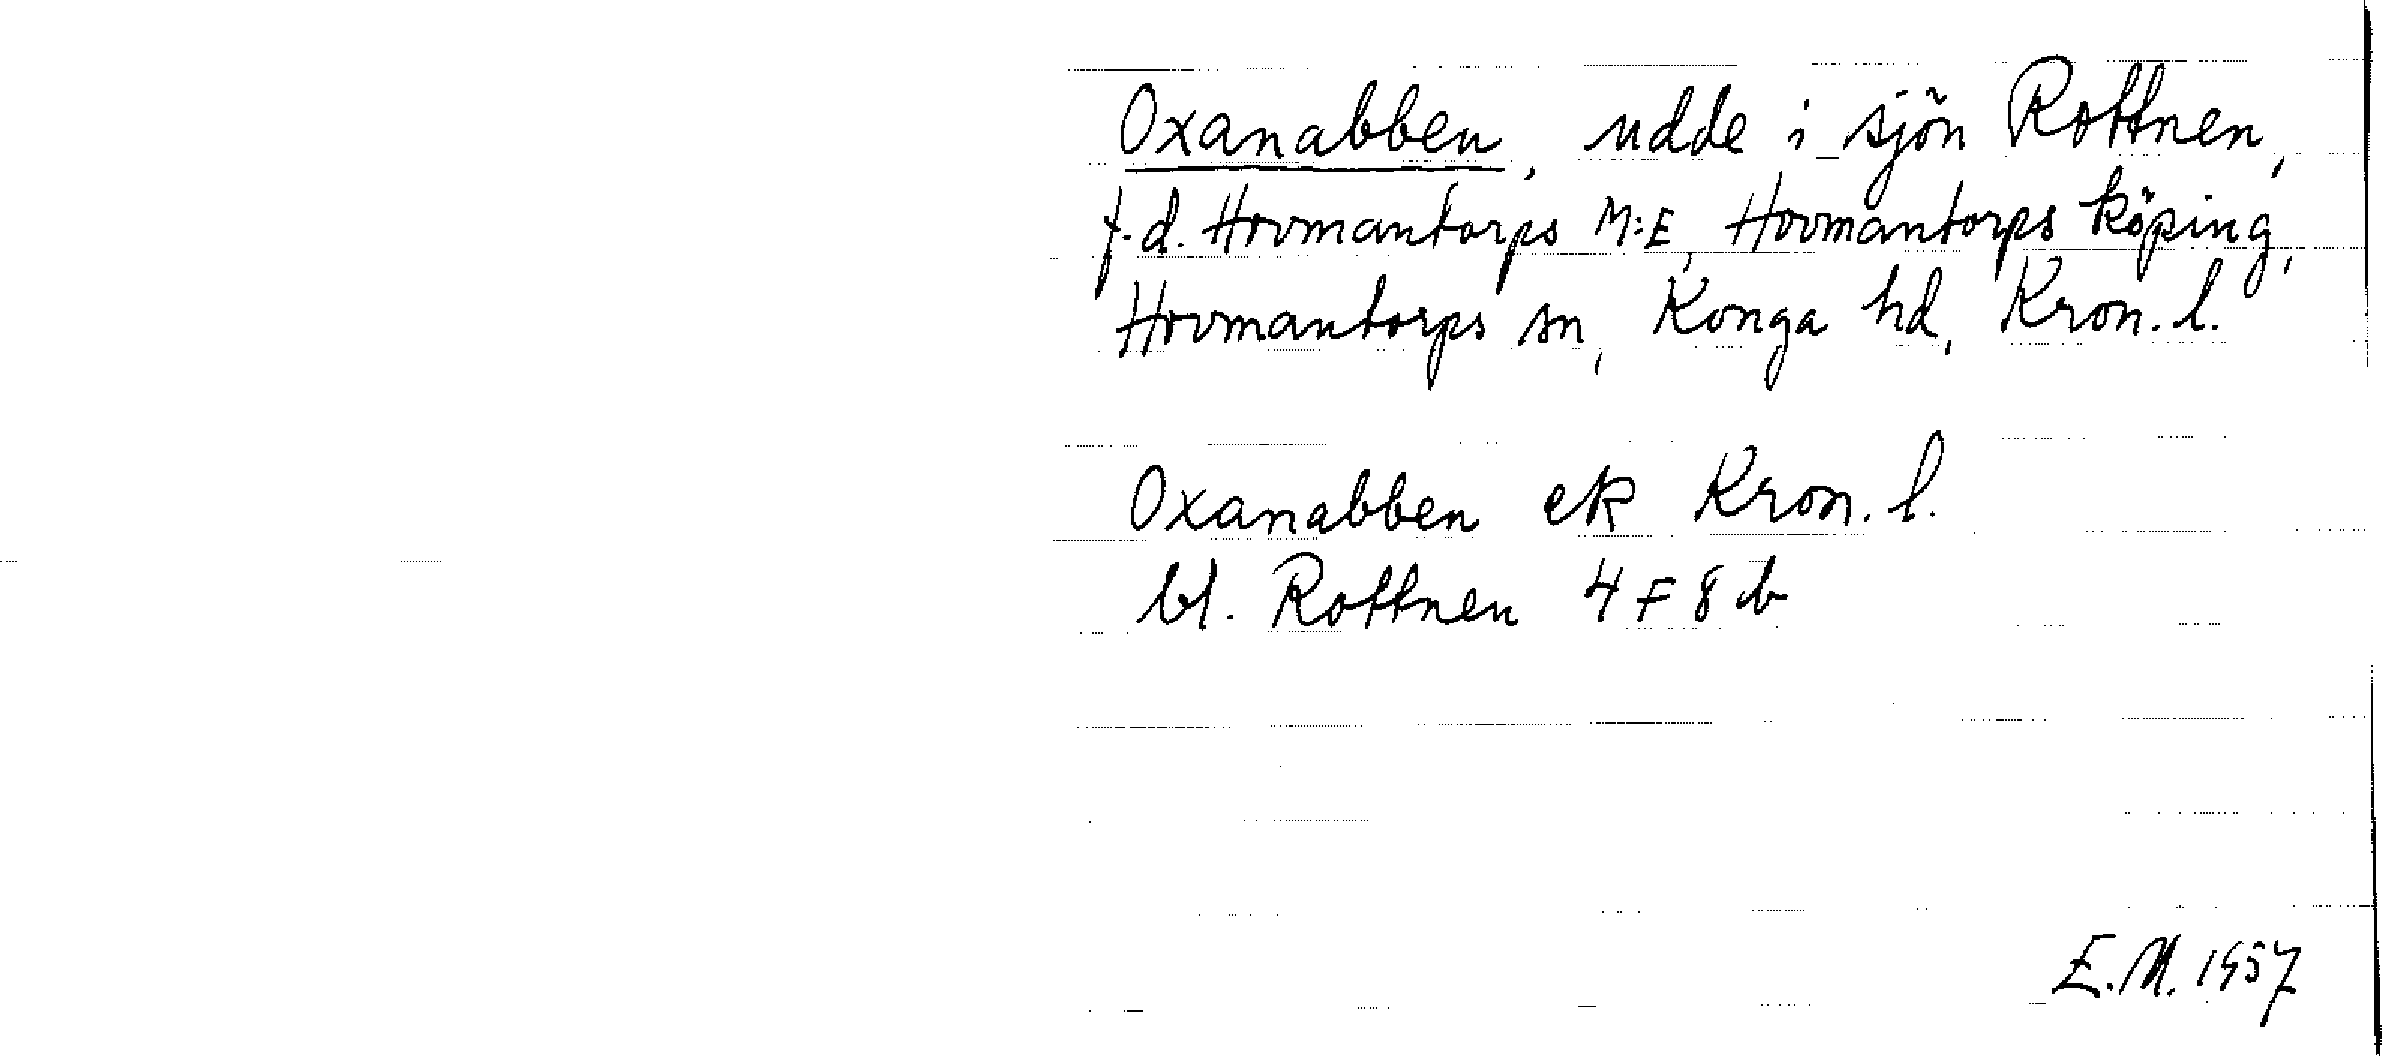 Oxanabben, udde i sjön Rottnen,
f.d. Hovmantorps M:E, Hovmantorps köping,
Hovmantorps sn, Konga hd, Kron. l.
Oxanabben ek Kron. l.
bl. Rottnen 4 F 8 b
E.M. 1957